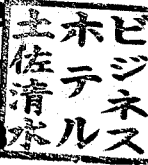 ビジネス
ホテル
土佐清水